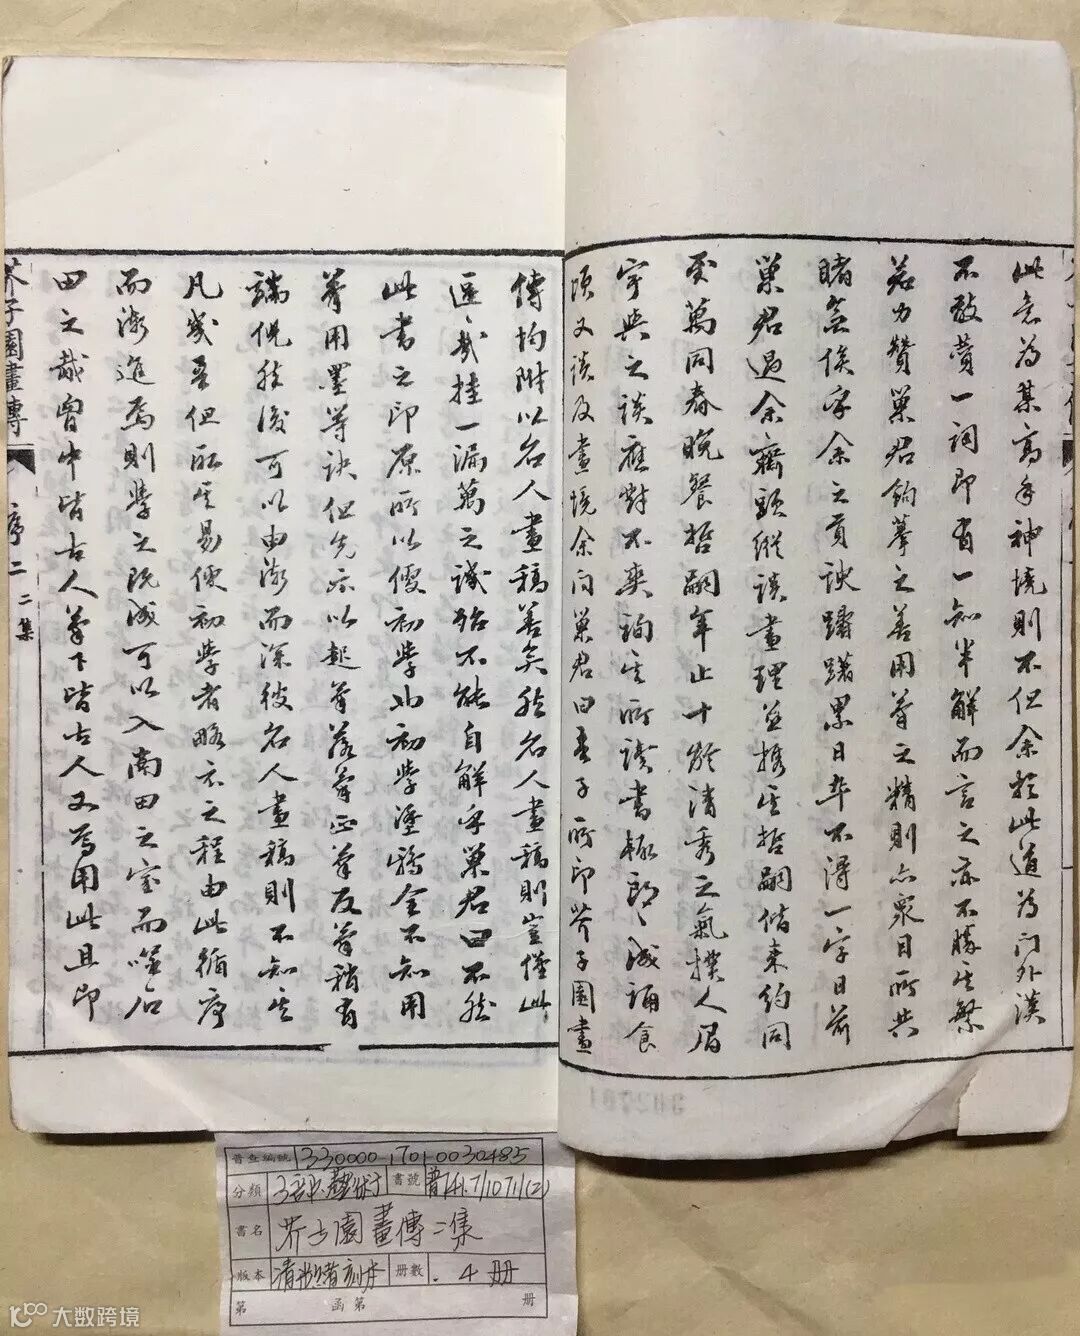 此意为某高手神境則不但余於此道為门外漢
不敢贊一詞即有一知半解而言之亦不勝其繁
若力贊巢君鉤摹之善用筆之精則亦眾目所共
睹無俟余之贅諛躊躇累日卒不得一字日前
巢君過余齋頭縱談畫理並攜其哲嗣偕来約同
至萬同春晚餐哲嗣年止十齡清秀之氣撲人眉
宇與之談應對不爽詢其所讀書極朗朗成誦食
頃又談及畫境余问巢君曰吾子所印芥子園畫
傳均附以名人畫稿善矣然名人畫稿則豈僅此
區〻哉挂一漏萬之譏殆不能自解乎巢君曰不然
此書之印原所以便初學也初學塗鴉全不知用
筆用墨等訣但先示以起筆落筆正筆反筆稍有
端倪然後可以由淺而深彼名人畫稿則不知其
凡幾吾但取其易便初學者略示之程由此循序
而漸進焉則學之既成可以入南田之室而嚌石
田之胾胷中皆古人筆下皆古人又焉用此且印
芥子園畫傳
序
二
二集
普查編號 330000-1701-0030485
分類 子部·藝術 書號 普741.7/1071(2)
書名 芥子園畫傳二集
版本 清 刻本 册數 4册
第 函第 册
大数跨境